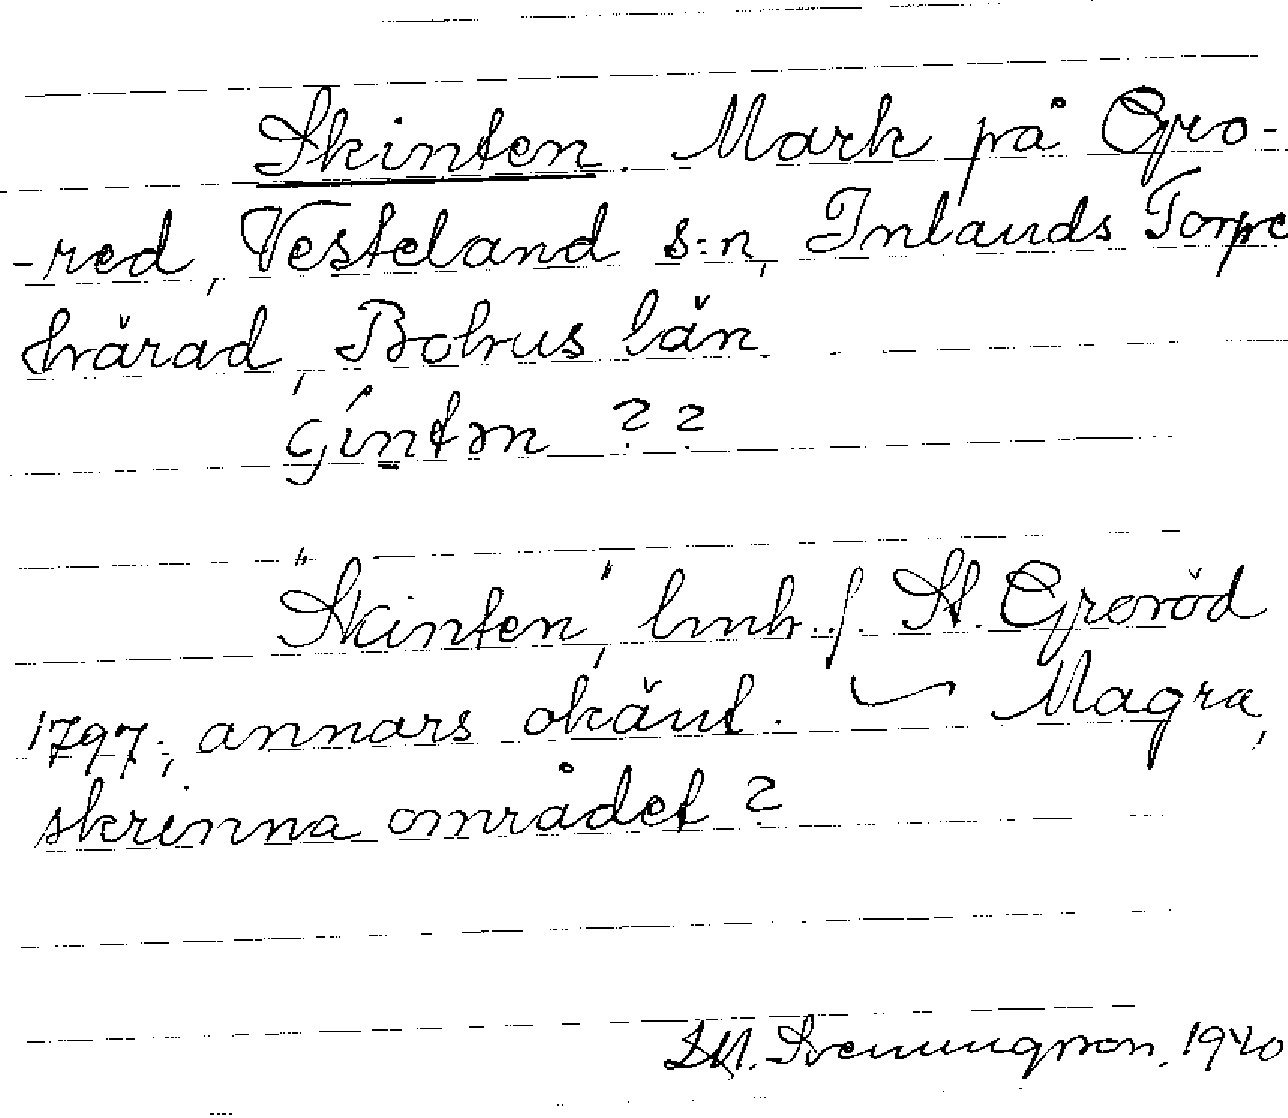 Skinten. Mark på Gro-
-red, Vesteland s:n, Inlands Torpe
härad, Bohus län.
ʃíntən ??
"Skinten", lmh. f. St. Groröd
1797; annars okänt. Magra,
skrinna området?
Svenungsson. 1940